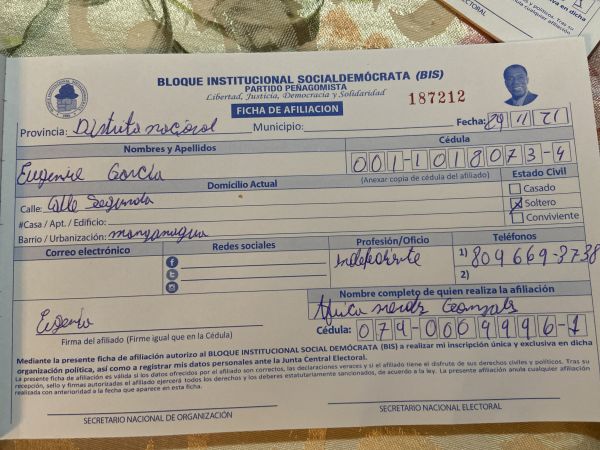 ELECTORAL
BLOQUE INSTITUCIONAL SOCIALDEMÓCRATA (BIS)
PARTIDO PEÑAGOMISTA
Libertad, Justicia, Democracia y Solidaridad
FICHA DE AFILIACION
187212
Provincia: Distrito nacional Municipio: Fecha: 29 11 21
Nombres y Apellidos Cédula
Eugenie García 001-1018073-4
Domicilio Actual (Anexar copia de cédula del afiliado) Estado Civil
Calle: Calle Segunda Casado
#Casa / Apt. / Edificio: Soltero
Barrio / Urbanización: manganagua Conviviente
Correo electrónico Redes sociales Profesión/Oficio Teléfonos
1) 809 669-3738
2)
Nombre completo de quien realiza la afiliación
Eugenia
Firma del afiliado (Firme igual que en la Cédula) Cédula: 079-0009996-1
Mediante la presente ficha de afiliación autorizo al BLOQUE INSTITUCIONAL SOCIAL DEMÓCRATA (BIS) a realizar mi inscripción única y exclusiva en dicha
organización política, así como a registrar mis datos personales ante la Junta Central Electoral.
La presente ficha de afiliación es válida si los datos ofrecidos por el afiliado son correctos, las declaraciones veraces y si el afiliado tiene el disfrute de sus derechos civiles y políticos. Tras su
recepción, sello y firmas autorizadas el afiliado ejercerá todos los derechos y los deberes estatutariamente sancionados, de acuerdo a la ley. La presente afiliación anula cualquier afiliación
realizada con anterioridad a la fecha que aparece en esta ficha.
SECRETARIO NACIONAL DE ORGANIZACIÓN SECRETARIO NACIONAL ELECTORAL